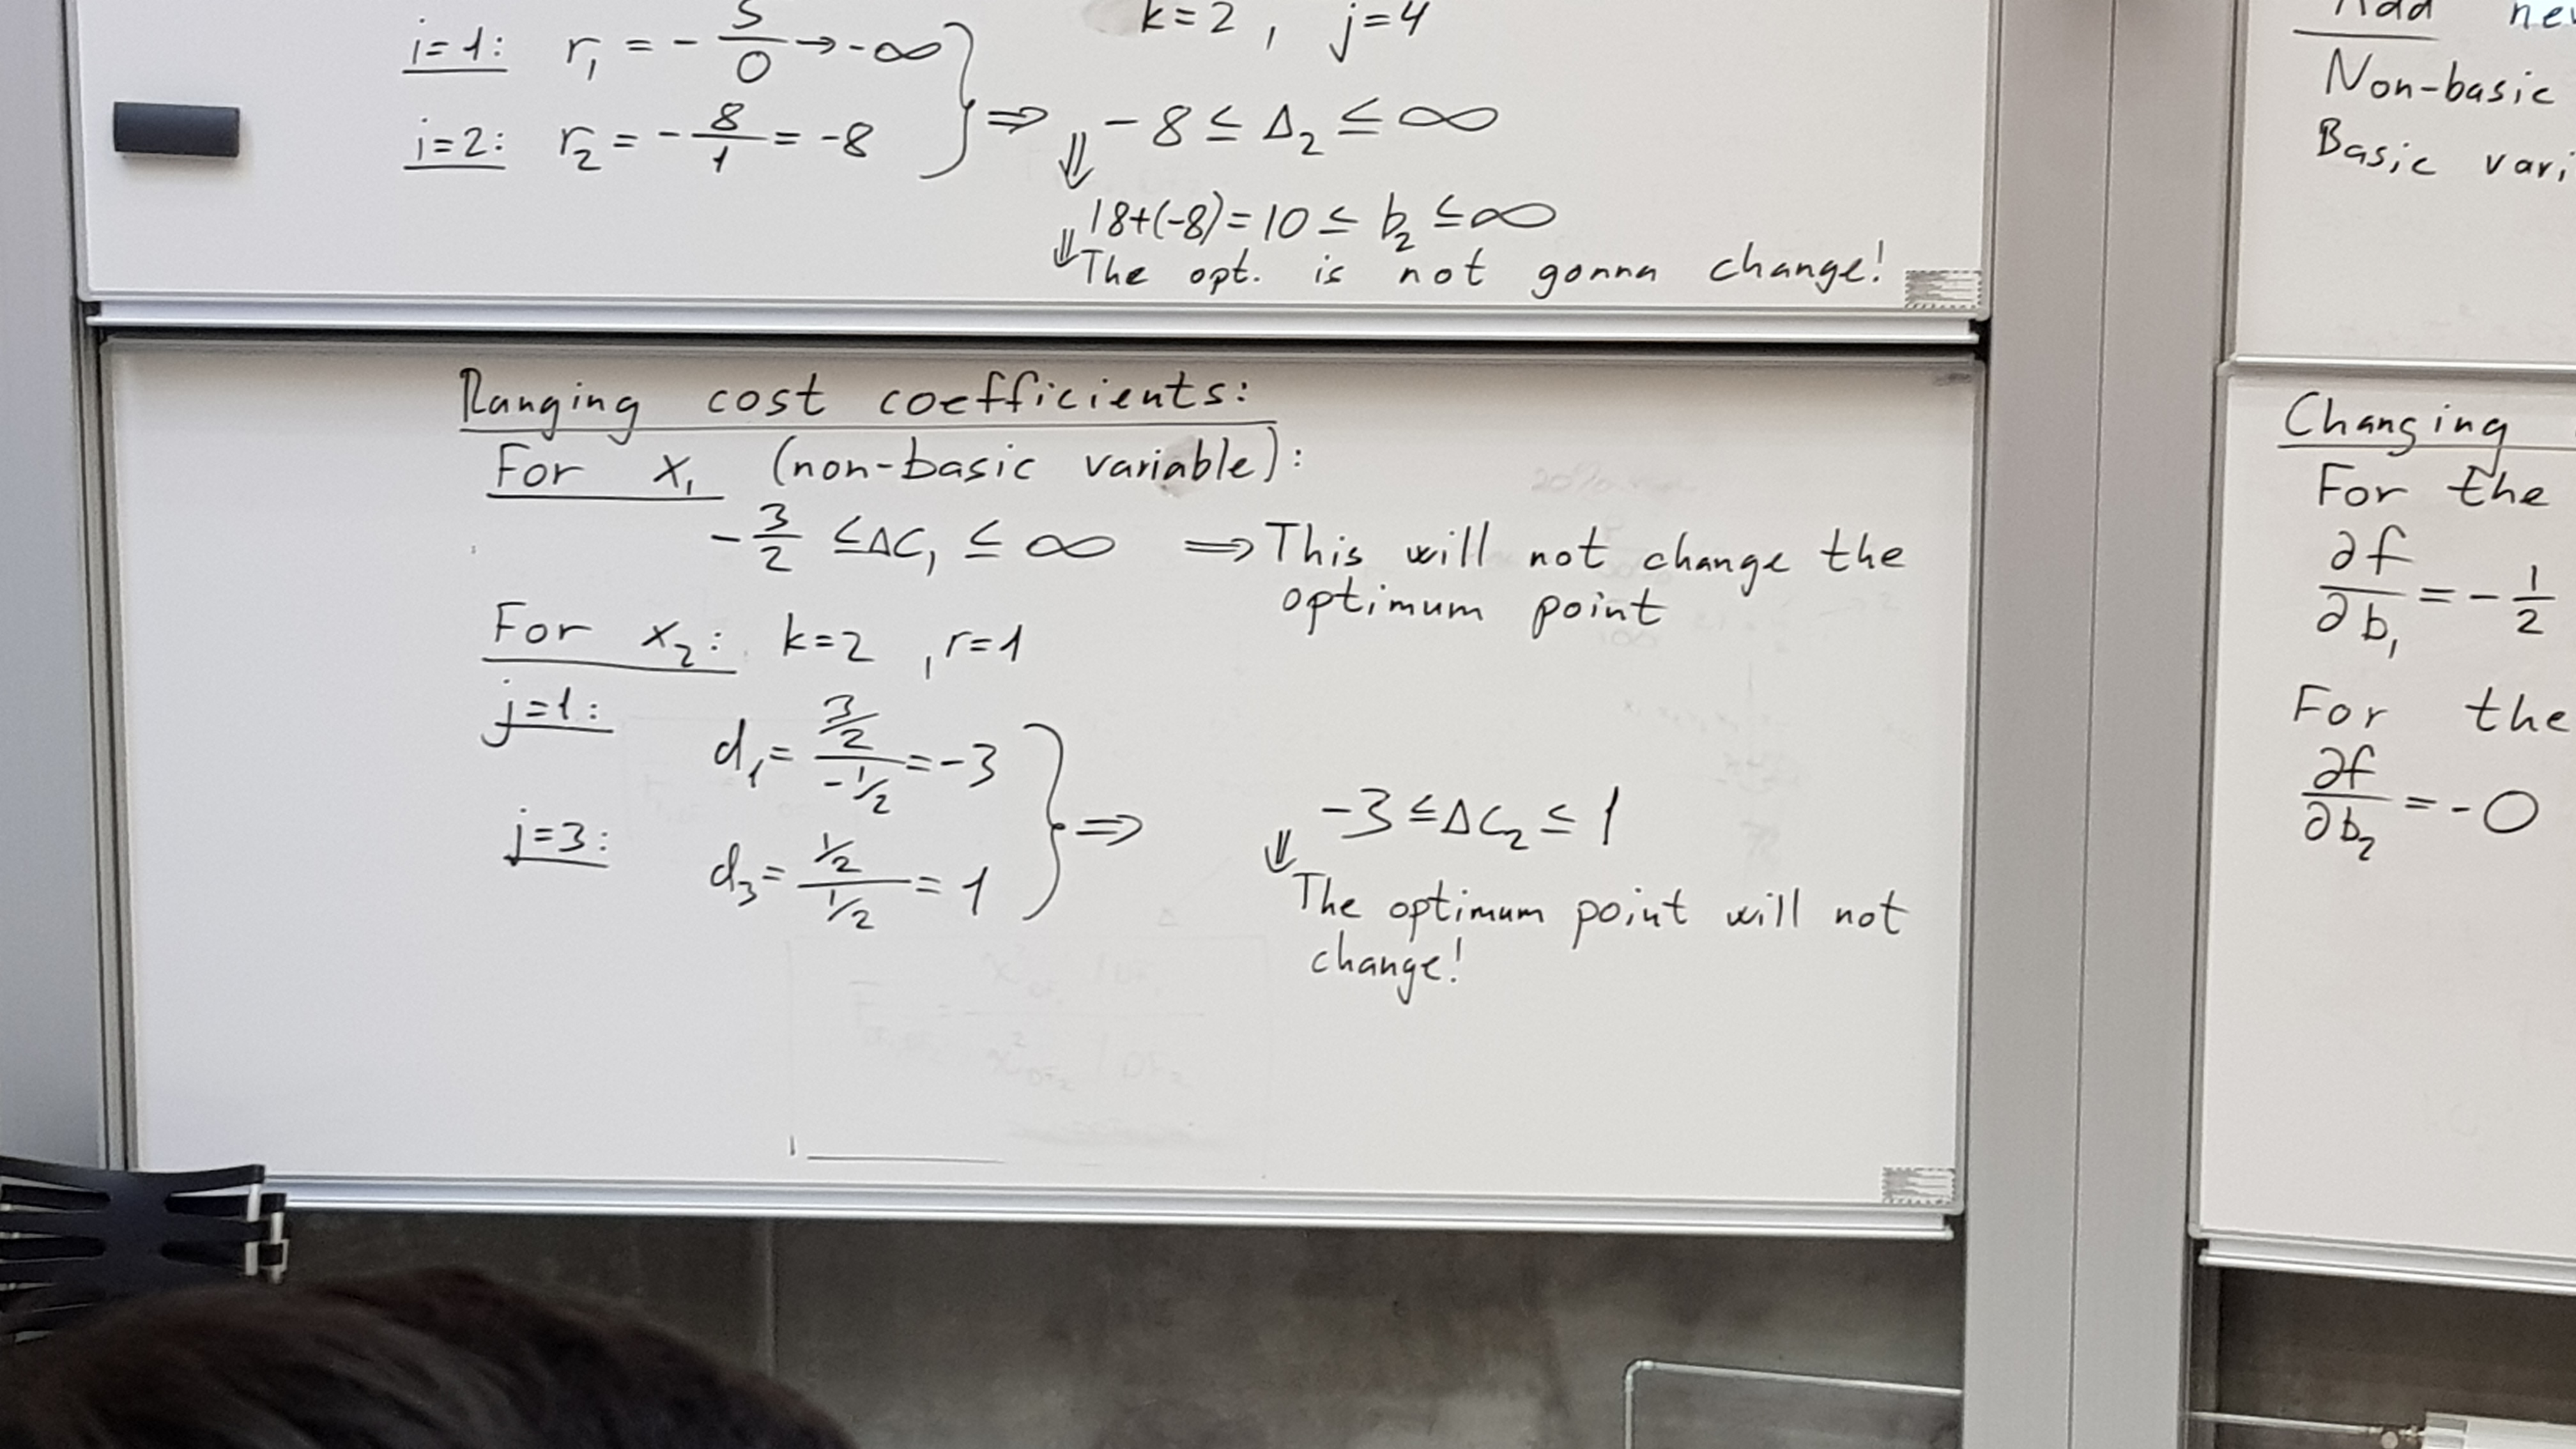 i=1: r₁ = - 5/0 → -∞
k=2, j=4
i=2: r₂ = - 8/1 = -8
⇒ -8 ≤ Δ₂ ≤ ∞
⇓ 18+(-8)=10 ≤ b₂ ≤ ∞
⇓ The opt. is not gonna change!
Ranging cost coefficients:
For x₁ (non-basic variable):
-3/2 ≤ ΔC₁ ≤ ∞ ⇒ This will not change the
optimum point
For x₂: k=2, r=1
j=1: d₁ = (3/2)/(-1/2) = -3
j=3: d₃ = (1/2)/(1/2) = 1
⇒ -3 ≤ ΔC₂ ≤ 1
⇓ The optimum point will not
change!
Add
Non-basic
Basic
Changing
For the
∂f/∂b₁ = - 1/2
For the
∂f/∂b₂ = -0